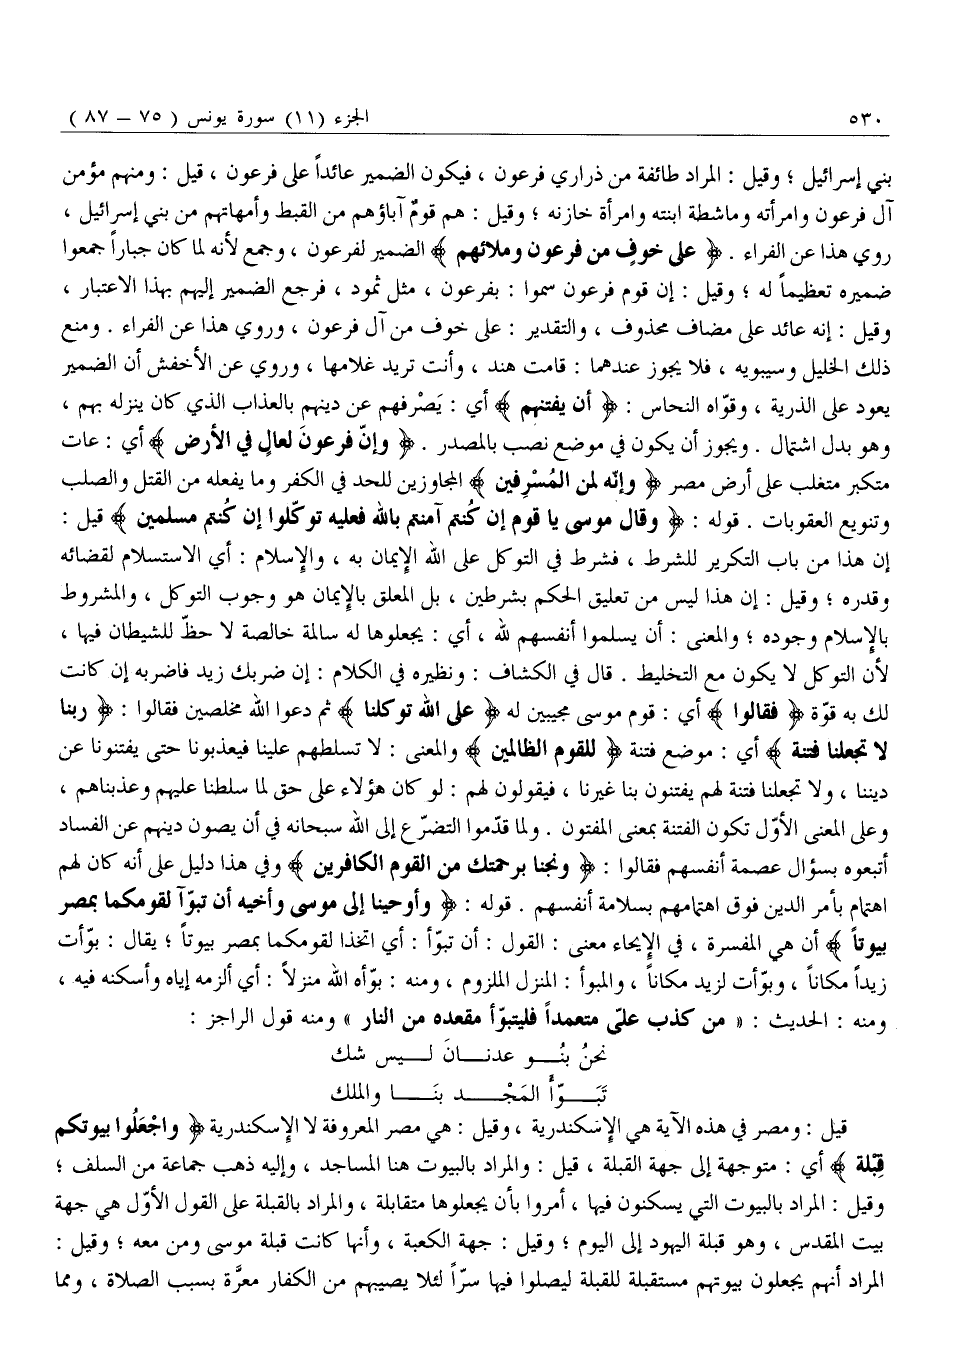 ٥٣٠ الجزء (١١) سورة يونس ( ٧٥ – ٨٧ )
بني إسرائيل ؛ وقيل : المراد طائفة من ذراري فرعون ، فيكون الضمير عائداً على فرعون ، قيل : ومنهم مؤمن
آل فرعون وامرأته وماشطة ابنته وامرأة خازنه ؛ وقيل : هم قومٌ آباؤهم من القبط وأمهاتهم من بني إسرائيل ،
روي هذا عن الفراء . ﴿ على خوفٍ من فرعون وملائهم ﴾ الضمير لفرعون ، وجمع لأنه لما كان جباراً جمعوا
ضميره تعظيماً له ؛ وقيل : إن قوم فرعون سموا : بفرعون ، مثل ثمود ، فرجع الضمير إليهم بهذا الاعتبار ،
وقيل : إنه عائد على مضاف محذوف ، والتقدير : على خوف من آل فرعون ، وروي هذا عن الفراء . ومنع
ذلك الخليل وسيبويه ، فلا يجوز عندهما : قامت هند ، وأنت تريد غلامها ، وروي عن الأخفش أن الضمير
يعود على الذرية ، وقوّاه النحاس : ﴿ أن يفتنهم ﴾ أي : يَصْرفهم عن دينهم بالعذاب الذي كان ينزله بهم ،
وهو بدل اشتمال . ويجوز أن يكون في موضع نصب بالمصدر . ﴿ وإنّ فرعونَ لعالٍ في الأرض ﴾ أي : عات
متكبر متغلب على أرض مصر ﴿ وإنّه لمن المُسْرِفين ﴾ المجاوزين للحد في الكفر وما يفعله من القتل والصلب
وتنويع العقوبات . قوله : ﴿ وقال موسى يا قوم إن كُنتم آمنتم بالله فعليه توكّلوا إن كُنتم مسلمين ﴾ قيل :
إن هذا من باب التكرير للشرط ، فشرط في التوكل على الله الإيمان به ، والإسلام : أي الاستسلام لقضائه
وقدره ؛ وقيل : إن هذا ليس من تعليق الحكم بشرطين ، بل المعلق بالإيمان هو وجوب التوكل ، والمشروط
بالإسلام وجوده ؛ والمعنى : أن يسلموا أنفسهم لله ، أي : يجعلوها له سالمة خالصة لا حظّ للشيطان فيها ،
لأن التوكل لا يكون مع التخليط . قال في الكشاف : ونظيره في الكلام : إن ضربك زيد فاضربه إن كانت
لك به قوّة ﴿ فقالوا ﴾ أي : قوم موسى مجيبين له ﴿ على الله توكلنا ﴾ ثم دعوا الله مخلصين فقالوا : ﴿ ربنا
لا تجعلنا فتنة ﴾ أي : موضع فتنة ﴿ للقوم الظالمين ﴾ والمعنى : لا تسلطهم علينا فيعذبونا حتى يفتنونا عن
ديننا ، ولا تجعلنا فتنة لهم يفتنون بنا غيرنا ، فيقولون لهم : لو كان هؤلاء على حق لما سلطنا عليهم وعذبناهم ،
وعلى المعنى الأوّل تكون الفتنة بمعنى المفتون . ولما قدّموا التضرّع إلى الله سبحانه في أن يصون دينهم عن الفساد
أتبعوه بسؤال عصمة أنفسهم فقالوا : ﴿ ونجنا برحمتك من القوم الكافرين ﴾ وفي هذا دليل على أنه كان لهم
اهتمام بأمر الدين فوق اهتمامهم بسلامة أنفسهم . قوله : ﴿ وأوحينا إلى موسى وأخيه أن تبوّآ لقومكما بمصر
بيوتاً ﴾ أن هي المفسرة ، في الإيحاء معنى : القول : أن تبوّأ : أي اتخذا لقومكما بمصر بيوتاً ؛ يقال : بوّأت
زيداً مكاناً ، وبوّأت لزيد مكاناً ، والمبوأ : المنزل الملزوم ، ومنه : بوّأه الله منزلاً : أي ألزمه إياه وأسكنه فيه ،
ومنه : الحديث : « من كذب عليّ متعمداً فليتبوّأ مقعده من النار » ومنه قول الراجز :
نحنُ بنُـــو عدنـــانَ لـــيس شك
تَبَـــوّأَ المَجْـــد بنَـــا والملك
قيل : ومصر في هذه الآية هي الإسْكندرية ، وقيل : هي مصر المعروفة لا الإسكندرية ﴿ واجْعَلُوا بيوتكم
قِبْلة ﴾ أي : متوجهة إلى جهة القبلة ، قيل : والمراد بالبيوت هنا المساجد ، وإليه ذهب جماعة من السلف ؛
وقيل : المراد بالبيوت التي يسكنون فيها ، أمروا بأن يجعلوها متقابلة ، والمراد بالقبلة على القول الأوّل هي جهة
بيت المقدس ، وهو قبلة اليهود إلى اليوم ؛ وقيل : جهة الكعبة ، وأنها كانت قبلة موسى ومن معه ؛ وقيل :
المراد أنهم يجعلون بيوتهم مستقبلة للقبلة ليصلوا فيها سرّاً لئلا يصيبهم من الكفار معرَّة بسبب الصلاة ، ومما